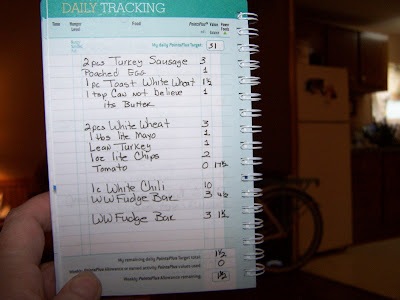 DAILY TRACKING
Time Hunger Level Food PointsPlus® Value
My daily PointsPlus Target 31
2pcs Turkey Sausage 3
Poached Egg 1
1pc Toast White Wheat 1½
1 tsp Can not believe 1
its Butter
2pcs White Wheat 3
1 tbs lite Mayo 1
Lean Turkey 1
1oz lite Chips 2
Tomato 0 17½
1c White Chili 10
WW Fudge Bar 3 4½
WW Fudge Bar 3 1½
My remaining daily PointsPlus Target total: 1½
PointsPlus Allowance or earned activity PointsPlus values used: 0
Weekly PointsPlus Allowance remaining: 1½